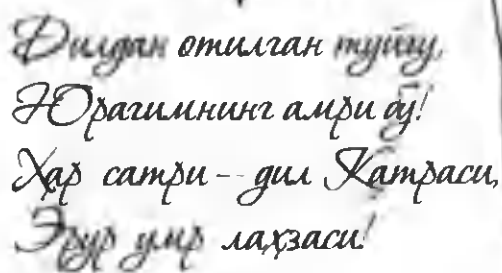 Дилдан отилган туйғу,
Юрагимнинг амри бу!
Ҳар сатри -- дил Қатраси,
Эрур умр лаҳзаси!